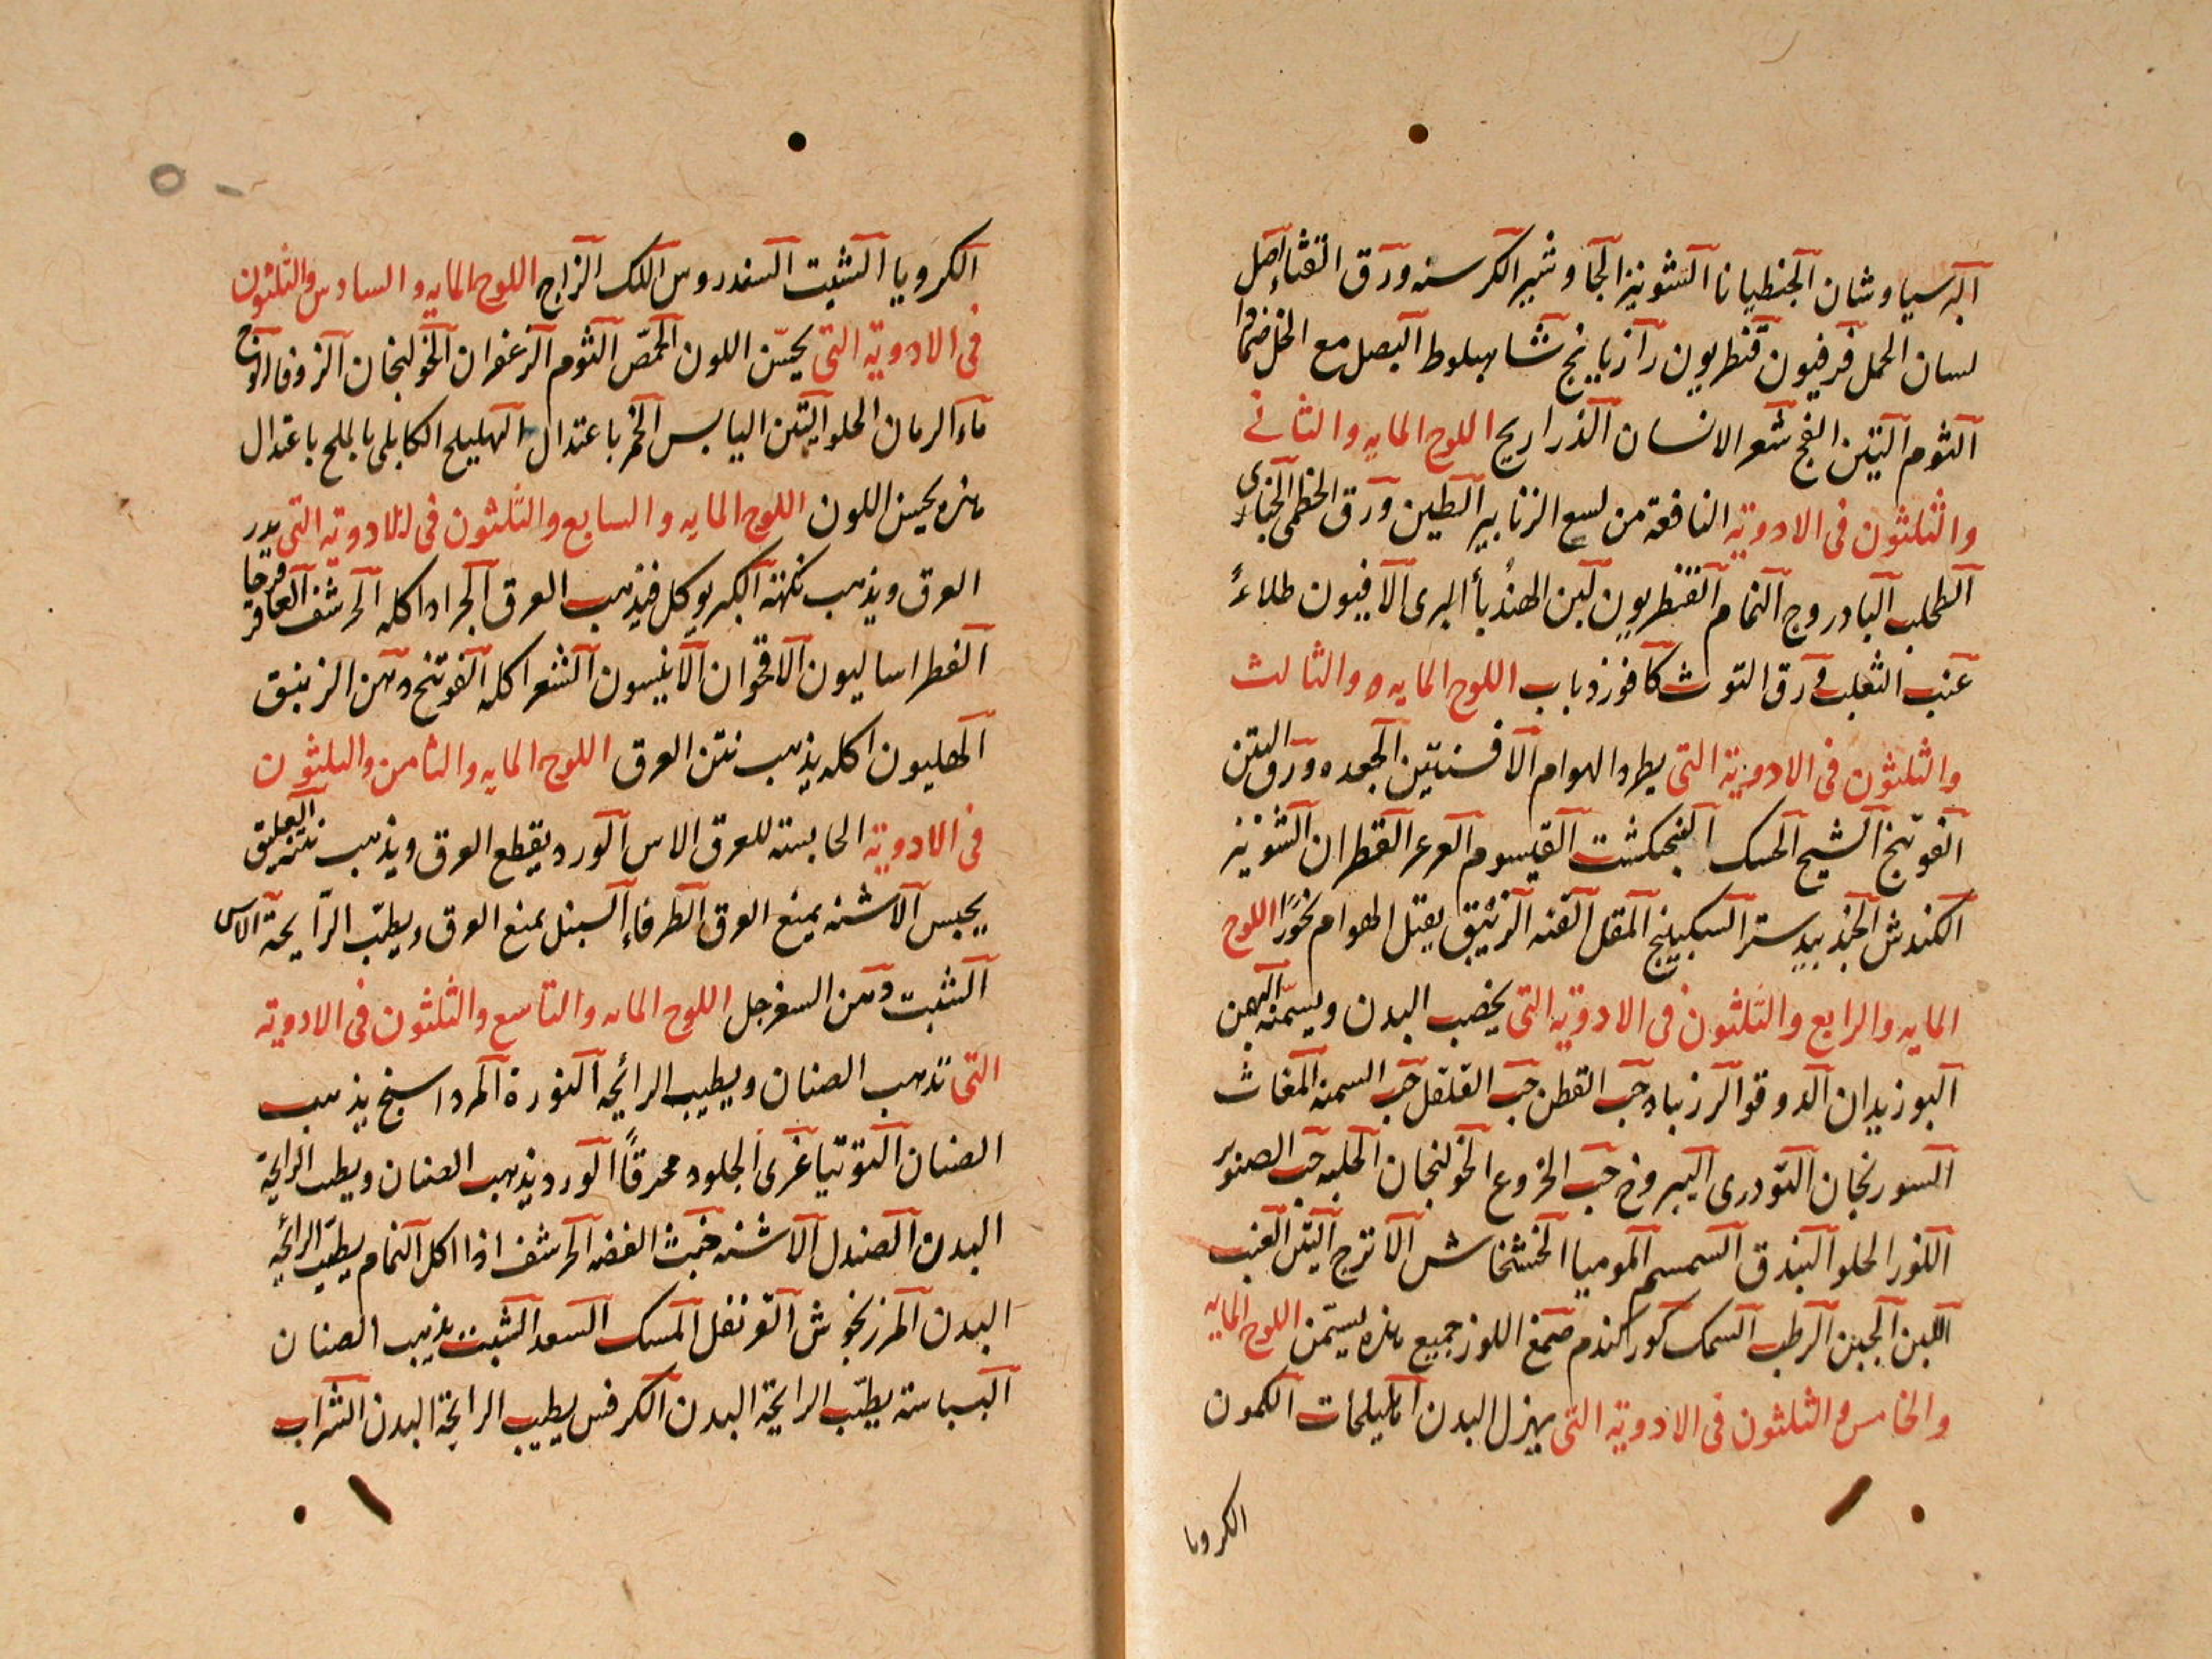 البرسياوشان الجنطيانا الشونيز الجاوشير الكرسنه ورق القثاء اصل
لسان الحمل فرفيون قنطريون رازيانج شاهبلوط البصل مع الخل ضمادا
الثوم التين الفج شعر الانسان الذراريح اللوح المايه والثانى
والثلثون فى الادوية النافعة من لسع الزنابير الطين ورق الخطمى الخبازى
الطحلب البادروج النمام القنطريون لبن الهندبا البرى الافيون طلاءً
عنب الثعلب ورق التوث كافور ذباب اللوح المايه والثالث
والثلثون فى الادوية التى يطرد الهوام الافسنتين الجعده ورق التين
الفوتنج الشيح الحسك الفنجكشت القيسوم العرعر القطران الشونيز
الكندش الجندبيدستر السكبينج المقل القنه الزئبق يقتل الهوام بخورًا اللوح
المايه والرابع والثلثون فى الادوية التى يخصب البدن ويسمّنه البهمن
البوزيدان الدوقو الزرنباد حب القطن حب القلقل حب السمنه المغاث
السورنجان التودرى اليبروح حب الخروع الخولنجان الحلبه حب الصنوبر
اللوز الحلو البندق السمسم الموميا الخشخاش الاترج التين العنب
اللبن الجبن الرطب السمك كوركندم صمغ اللوز جميع هذه يسمّن اللوح المايه
والخامس والثلثون فى الادوية التى يهزل البدن الهليلجات الكمون
الكرويا
الكرويا الشبت السندروس اللك الزاج اللوح المايه والسادس والثلثون
فى الادوية التى يحسّن اللون الحمّص الثوم الزعفران الخولنجان الزوفا
ماء الرمان الحلو التين اليابس الخمر باعتدال الهليلج الكابلى الملح باعتدال
هذه يحسن اللون اللوح المايه والسابع والثلثون فى الادوية التى يدر
العرق ويذهب نكهته الكبر يوكل فيذهب العرق الجراد اكله الحرشف العاقرقرحا
الفطراساليون الاقحوان الانيسون الشعر اكله الفوتنج دهن الزنبق
الهليون اكله يذهب نتن العرق اللوح المايه والثامن والثلثون
فى الادوية الحابسة للعرق الاس الورد يقطع العرق ويذهب نتنه العليق
يحبس الاشنه يمنع العرق الطرفاء السنبل يمنع العرق ويطيّب الرّايحة الاس
الشبت دهن السفرجل اللوح المايه والتاسع والثلثون فى الادوية
التى تذهب الصنان ويطيب الرائحه النورة المرداسنج يذهب
الصنان التوتيا غرى الجلود محرقاً الورد يذهب الصنان ويطيب الرايحة
البدن الصندل الاشنه خبث الفضه الحرشف اذا اكل النمام يطيّب الرائحه
البدن المرزنجوش القرنفل المسك السعد الشبت يذهب الصنان
البسباسة يطيّب الرايحة البدن الكرفس يطيب الرايحة البدن الشراب